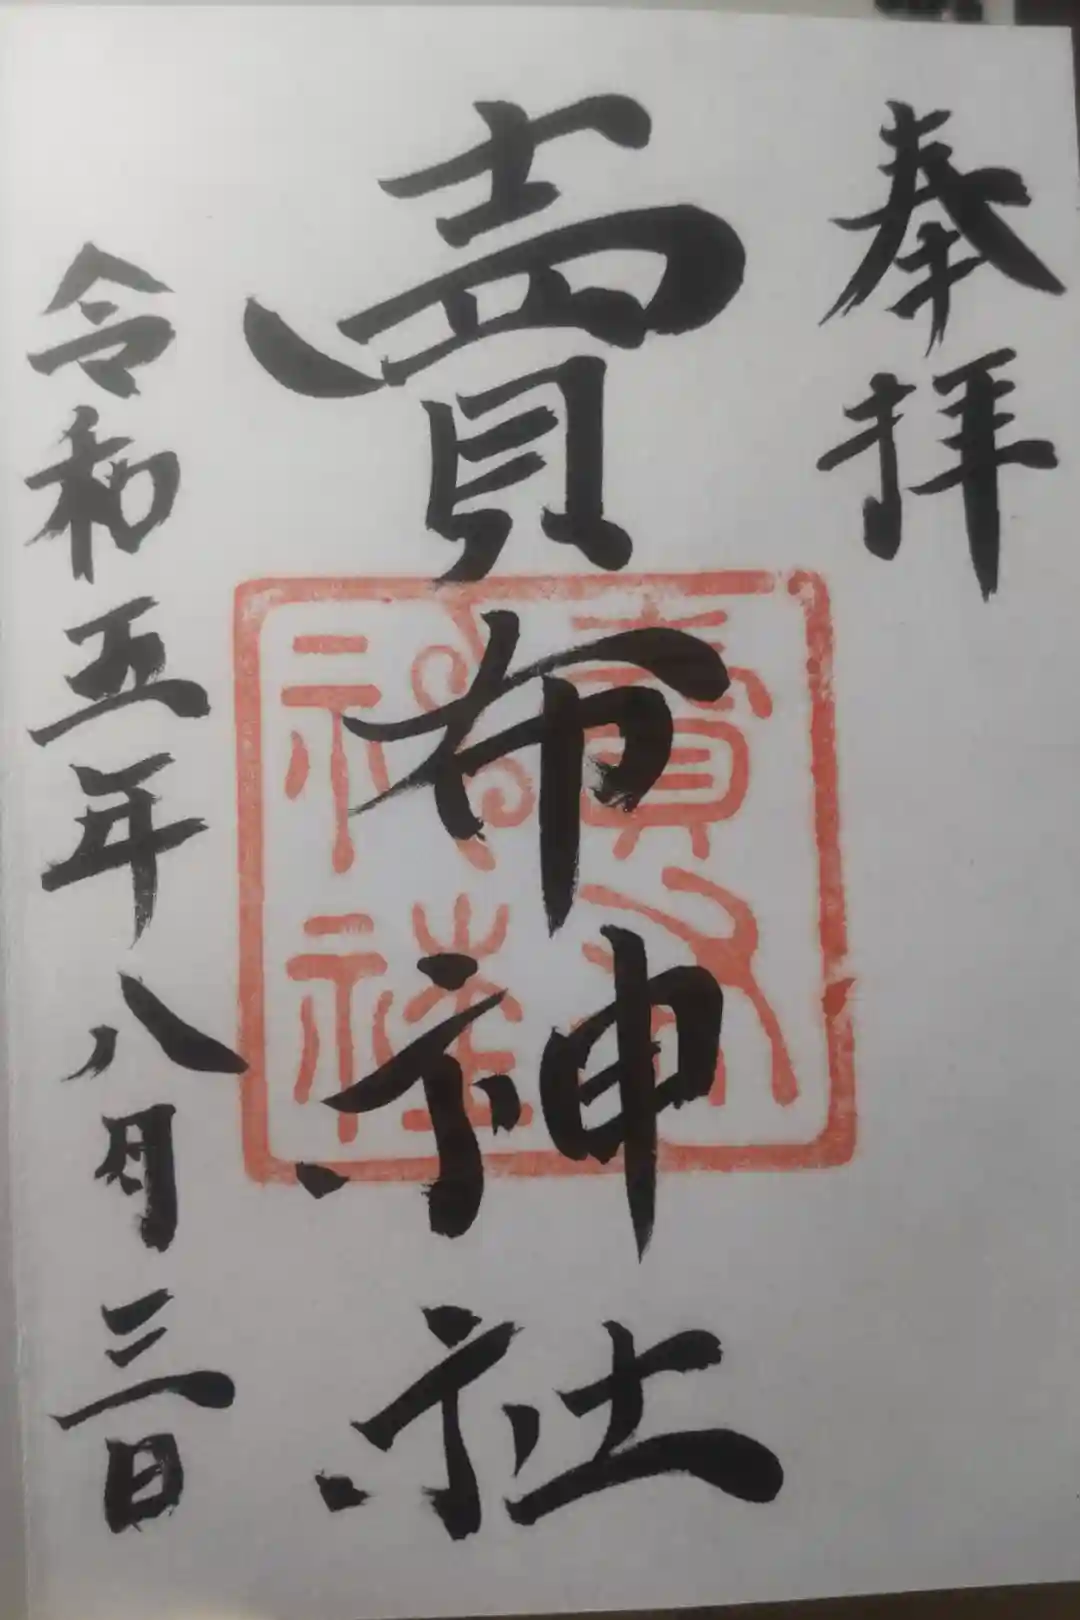 奉拝
賣布神社
賣布神社
令和五年八月三日